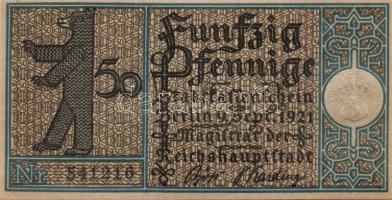 50
Funfzig
Pfennige
Stadtkassenschein
Berlin 9. Sept. 1921
Magistrat der
Reichshauptstadt
Nr. 541216